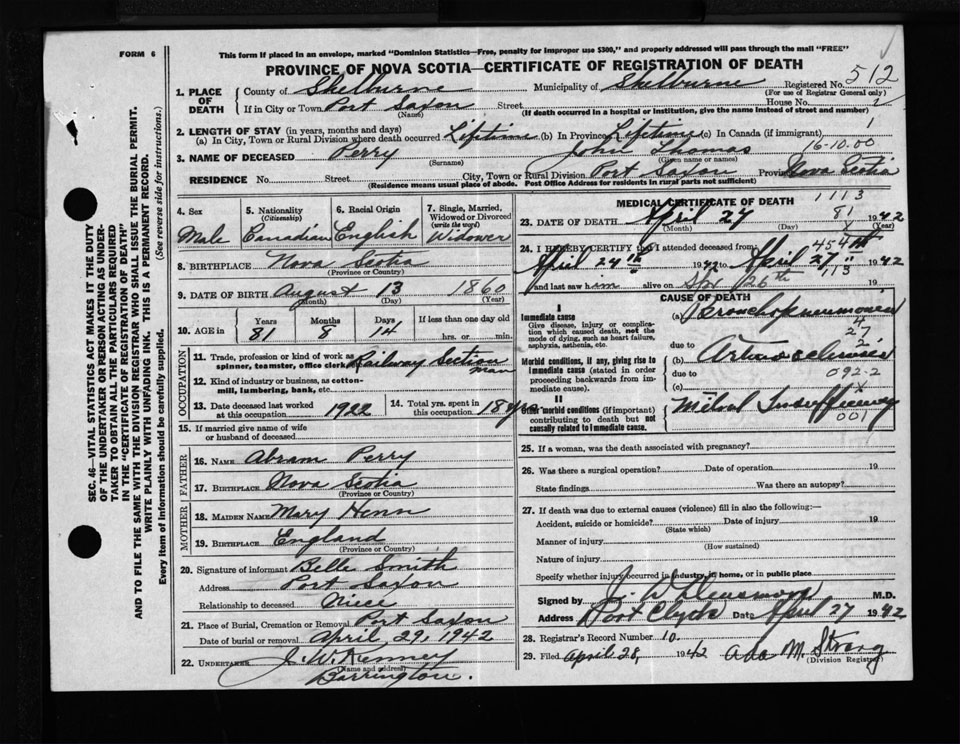 FORM 6
This form if placed in an envelope, marked "Dominion Statistics—Free, penalty for improper use $300," and properly addressed will pass through the mail "FREE"
PROVINCE OF NOVA SCOTIA—CERTIFICATE OF REGISTRATION OF DEATH
512
1. PLACE OF DEATH
County of Shelburne Municipality of Shelburne Registered No.
(For use of Registrar General only)
If in City or Town Port Saxon Street House No. 2
(Name) (If death occurred in a hospital or institution, give the name instead of street and number)
2. LENGTH OF STAY (in years, months and days)
1
(a) In City, Town or Rural Division where death occurred Lifetime (b) In Province Lifetime (c) In Canada (if immigrant)
16-10.00
3. NAME OF DECEASED Perry John Thomas
(Surname) (Given name or names)
RESIDENCE No. Street City, Town or Rural Division Port Saxon Province Nova Scotia
(Residence means usual place of abode. Post Office Address for residents in rural parts not sufficient)
4. Sex Male
5. Nationality (Citizenship) Canadian
6. Racial Origin English
7. Single, Married, Widowed or Divorced (write the word) Widower
8. BIRTHPLACE Nova Scotia
(Province or Country)
9. DATE OF BIRTH August 13 1860
(Month) (Day) (Year)
10. AGE in Years 81 Months 8 Days 14 If less than one day
hrs. or min.
OCCUPATION
11. Trade, profession or kind of work as spinner, teamster, office clerk Railway Section man
12. Kind of industry or business, as cotton-mill, lumbering, bank, etc.
13. Date deceased last worked at this occupation 1922
14. Total yrs. spent in this occupation 18 yrs
15. If married give name of wife or husband of deceased
FATHER
16. NAME Abram Perry
17. BIRTHPLACE Nova Scotia
(Province or Country)
MOTHER
18. MAIDEN NAME Mary
19. BIRTHPLACE England
(Province or Country)
20. Signature of informant Belle Smith
Address Port Saxon
Relationship to deceased Niece
21. Place of Burial, Cremation or Removal Port Saxon
Date of burial or removal April 29, 1942
22. UNDERTAKER J. W. Kenney
(Name and address)
Barrington.
MEDICAL CERTIFICATE OF DEATH
1113
23. DATE OF DEATH April 27 81 1942
(Month) (Day) (Year)
X
454
24. I HEREBY CERTIFY that I attended deceased from:
April 24th 1942 to April 27th 1942
113
and last saw him alive on 26th
CAUSE OF DEATH
I
Immediate cause
Give disease, injury or complication which caused death, not the mode of dying, such as heart failure, asphyxia, asthenia, etc.
(a) Bronchopneumonia
27
2
due to
Morbid conditions, if any, giving rise to immediate cause (stated in order proceeding backwards from immediate cause).
(b) Arteriosclerosis
due to 092-2
(c) X
II
Other morbid conditions (if important) contributing to death but not causally related to immediate cause.
Mitral Insufficiency
001
25. If a woman, was the death associated with pregnancy?
26. Was there a surgical operation? Date of operation 19
State findings Was there an autopsy?
27. If death was due to external causes (violence) fill in also the following:—
Accident, suicide or homicide? Date of injury 19
(State which)
Manner of injury
(How sustained)
Nature of injury
Specify whether injury occurred in industry, in home, or in public place
Signed by M.D.
Address Port Clyde Date April 27 1942
28. Registrar's Record Number 10
29. Filed April 28, 1942 Ada M. Strang
(Division Registrar)
SEC. 46—VITAL STATISTICS ACT MAKES IT THE DUTY
OF THE UNDERTAKER OR PERSON ACTING AS UNDER-
TAKER TO OBTAIN ALL THE PARTICULARS REQUIRED
IN THE "CERTIFICATE OF REGISTRATION OF DEATH"
AND TO FILE THE SAME WITH THE DIVISION REGISTRAR WHO SHALL ISSUE THE BURIAL PERMIT.
WRITE PLAINLY WITH UNFADING INK. THIS IS A PERMANENT RECORD.
Every item of information should be carefully supplied. (See reverse side for instructions.)